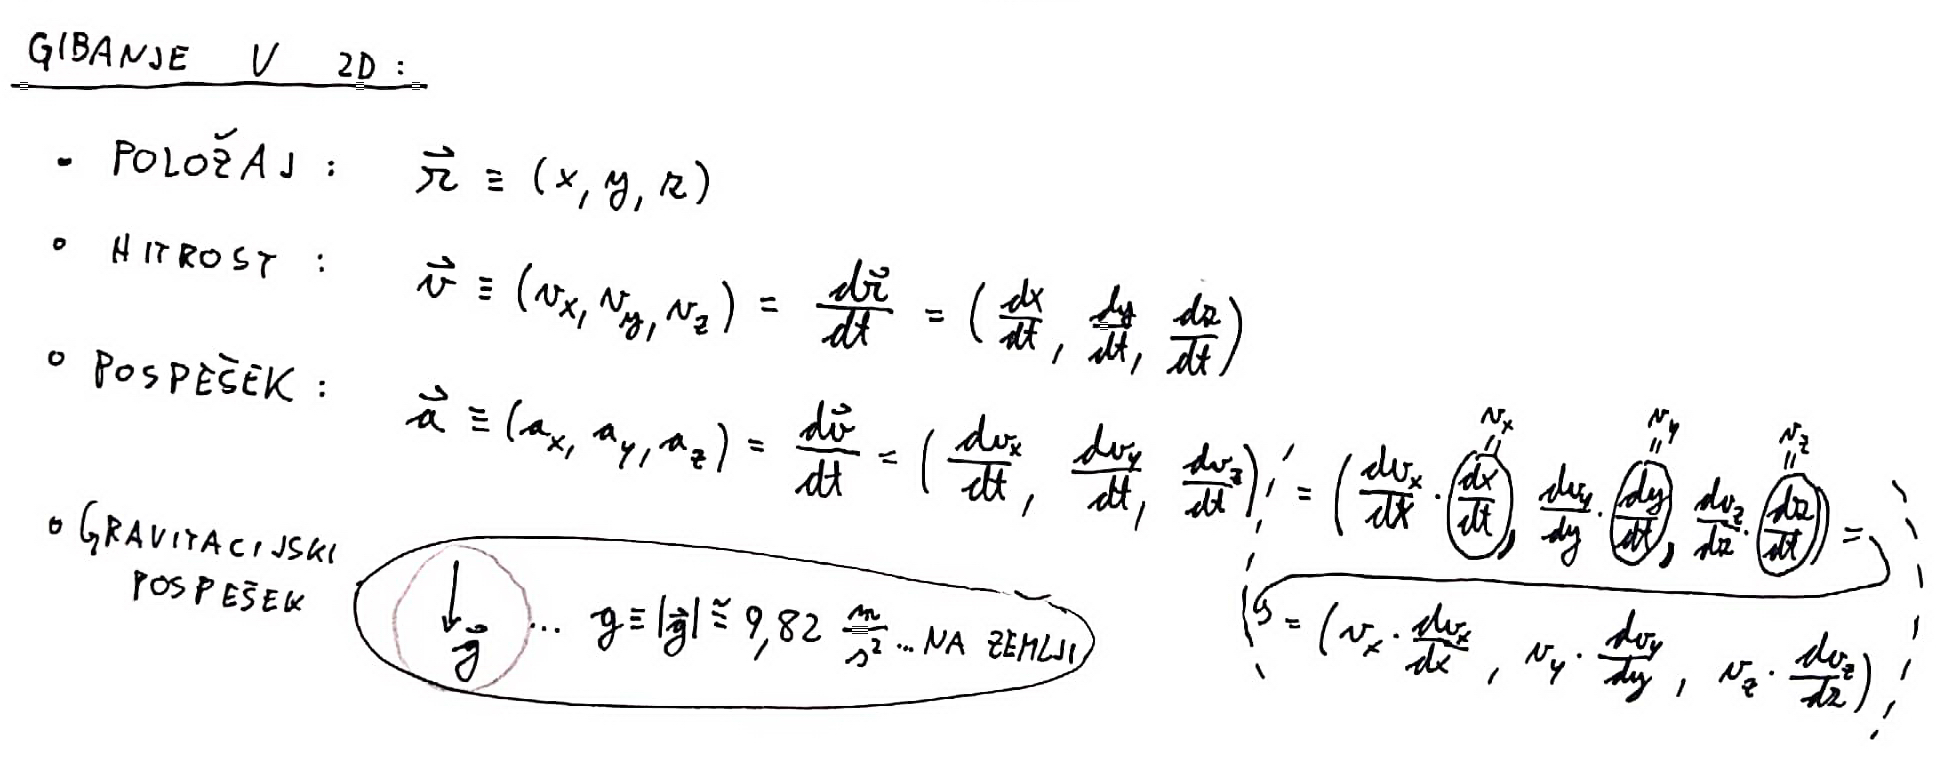 GIBANJE V 2D:
• POLOŽAJ: $\vec{r} \equiv (x, y, z)$
• HITROST: $\vec{v} \equiv (v_x, v_y, v_z) = \frac{d\vec{r}}{dt} = \left(\frac{dx}{dt}, \frac{dy}{dt}, \frac{dz}{dt}\right)$
• POSPEŠEK: $\vec{a} \equiv (a_x, a_y, a_z) = \frac{d\vec{v}}{dt} = \left(\frac{dv_x}{dt}, \frac{dv_y}{dt}, \frac{dv_z}{dt}\right) = \left(\frac{dv_x}{dx} \cdot \overset{\overset{v_x}{\shortparallel}}{\frac{dx}{dt}}, \frac{dv_y}{dy} \cdot \overset{\overset{v_y}{\shortparallel}}{\frac{dy}{dt}}, \frac{dv_z}{dz} \cdot \overset{\overset{v_z}{\shortparallel}}{\frac{dz}{dt}}\right) =$
$= \left(v_x \cdot \frac{dv_x}{dx}, v_y \cdot \frac{dv_y}{dy}, v_z \cdot \frac{dv_z}{dz}\right)$
• GRAVITACIJSKI
POSPEŠEK
$\downarrow \vec{g}$ ... $g \equiv |\vec{g}| \cong 9,82 \frac{m}{s^2}$ ... NA ZEMLJI